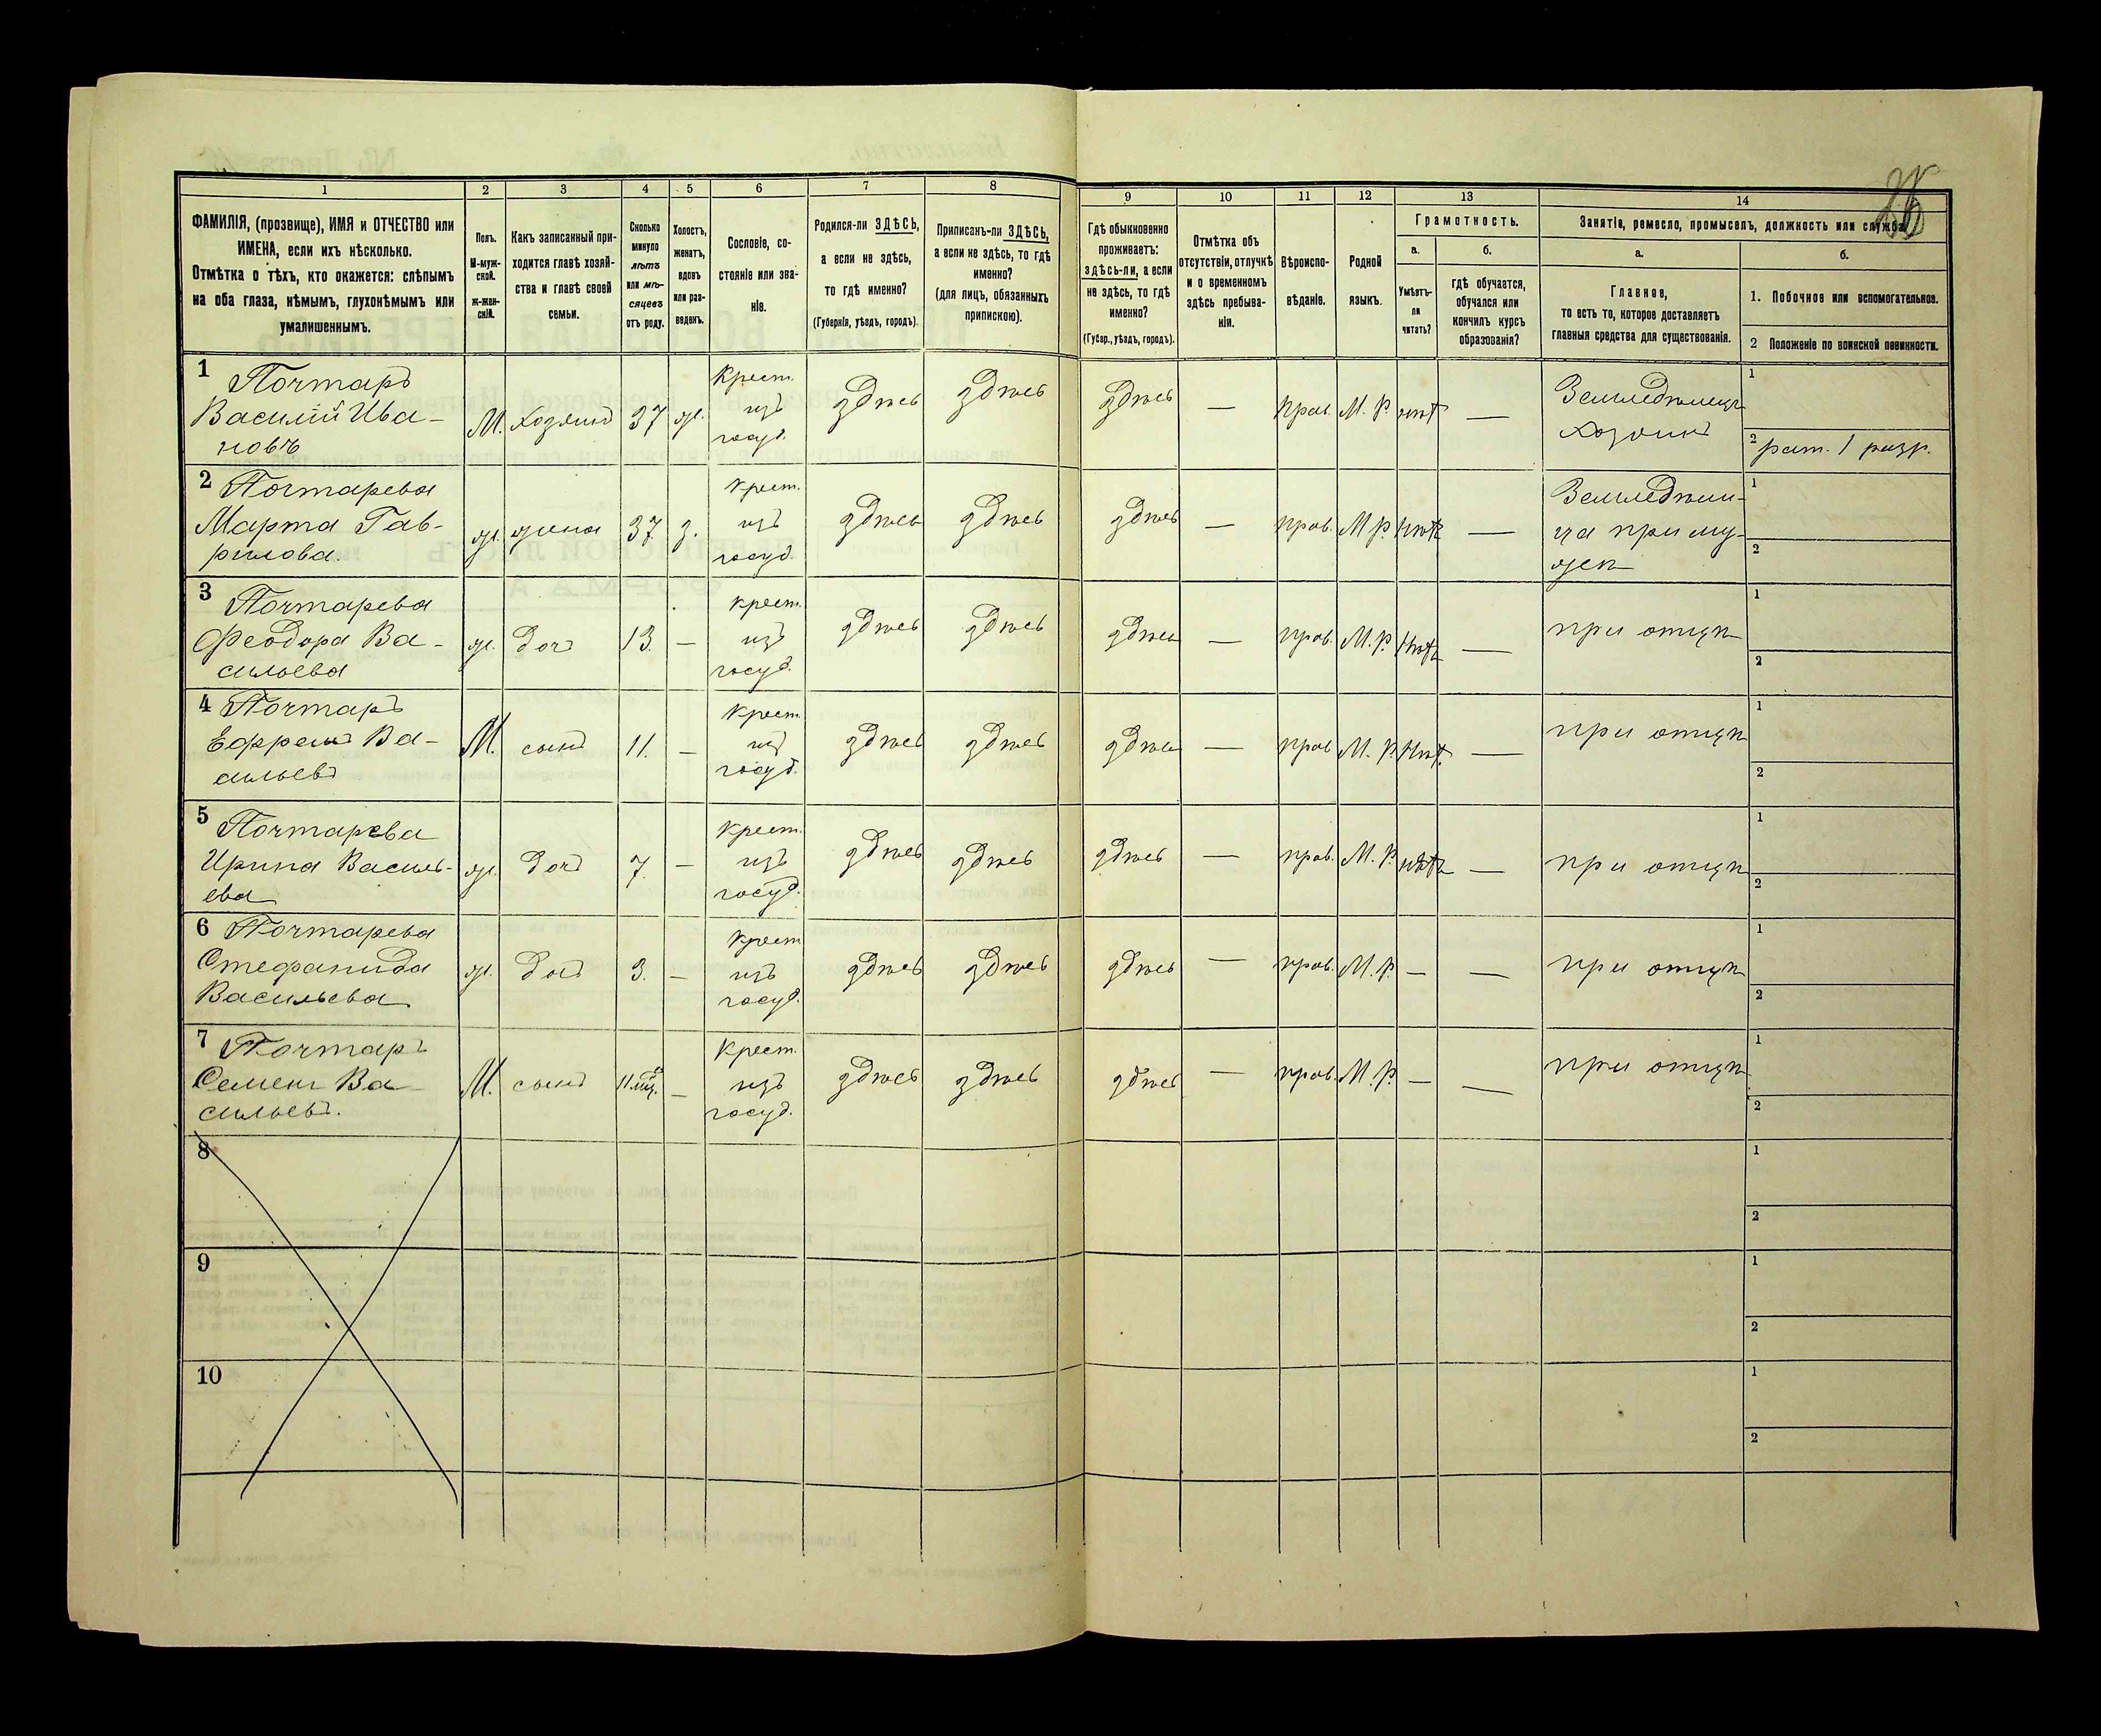 1 2 3 4 5 6 7 8 9 10 11 12 13 14
ФАМИЛІЯ, (прозвище), ИМЯ и ОТЧЕСТВО или
ИМЕНА, если ихъ нѣсколько.
Отмѣтка о тѣхъ, кто окажется: слѣпымъ
на оба глаза, нѣмымъ, глухонѣмымъ или
умалишеннымъ.
Полъ.
М-муж-
ской.
ж-жен-
скій.
Какъ записанный при-
ходится главѣ хозяй-
ства и главѣ своей
семьи.
Сколько
минуло
лѣтъ
или мѣ-
сяцевъ
отъ роду.
Холостъ,
женатъ,
вдовъ
или раз-
веденъ.
Сословіе, со-
стояніе или зва-
ніе.
Родился-ли ЗДѢСЬ,
а если не здѣсь,
то гдѣ именно?
(Губернія, уѣздъ, городъ).
Приписанъ-ли ЗДѢСЬ,
а если не здѣсь, то гдѣ
именно?
(для лицъ, обязанныхъ
припискою).
Гдѣ обыкновенно
проживаетъ:
здѣсь-ли, а если
не здѣсь, то гдѣ
именно?
(Губер., уѣздъ, городъ).
Отмѣтка объ
отсутствіи, отлучкѣ
и о временномъ
здѣсь пребыва-
ніи.
Вѣроиспо-
вѣданіе.
Родной
языкъ.
Грамотность.
а.
Умѣетъ-
ли
читать?
б.
гдѣ обучается,
обучался или
кончилъ курсъ
образованія?
Занятіе, ремесло, промыселъ, должность или служба.
а.
Главное,
то есть то, которое доставляетъ
главныя средства для существованія.
б.
1. Побочное или вспомогательное.
2 Положеніе по воинской повинности.
1 Почтаръ
Василій Ива-
новъ
М. хозяинъ 37 ж.
Крест.
изъ
госуд.
здѣсь здѣсь здѣсь — прав. М. Р. нѣт —
Земледѣлецъ
хозяинъ
1
2 рат. 1 разр.
2 Почтарева
Марта Гав-
рилова.
ж. жена 37 з.
крест.
изъ
госуд.
здѣсь здѣсь здѣсь — прав. М Р. нѣтъ —
Земледѣли-
ца при му-
жѣ
1
2
3 Почтарева
Феодора Ва-
сильева
ж. дочъ 13. —
крест.
изъ
госуд.
здѣсь здѣсь здѣсь — прав. М. Р. Нѣтъ —
при отцѣ
1
2
4 Почтаръ
Ефремъ Ва-
сильевъ
М. сынъ 11. —
крест.
изъ
госуд.
здѣсь здѣсь здѣсь — прав М. Р. Нѣт. —
при отцѣ
1
2
5 Почтарева
Ирина Василь-
ева
ж. дочъ 7. —
крест.
изъ
госуд.
здѣсь здѣсь здѣсь — прав. М. Р. нѣтъ —
при отцѣ
1
2
6 Почтарева
Стефанида
Васильева
ж. дочъ 3. —
крест
изъ
госуд.
здѣсь здѣсь здѣсь — прав. М. Р. — —
при отцѣ
1
2
7 Почтаръ
Семенъ Ва-
сильевъ.
М. сынъ 11 —
Крест.
изъ
госуд.
здѣсь здѣсь здѣсь — прав. М. Р. — —
при отцѣ
1
2
8
1
2
9
1
2
10
1
2